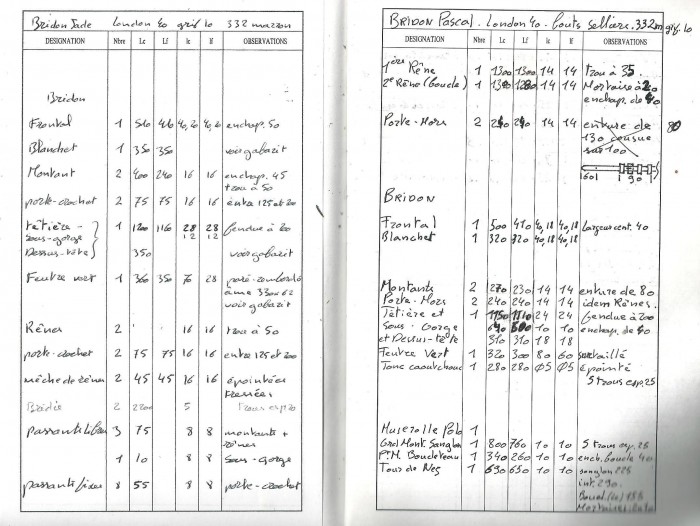 Bridon Jade London 40 grif 10 332 marron
DESIGNATION Nbre Lc Lf lc lf OBSERVATIONS
Bridon
Frontal 1 510 416 40,20 40,20 enchap. 50
Blanchet 1 350 350 voir gabarit
Montant 2 400 240 16 16 enchap. 45
trou à 50
porte-crochet 2 75 75 16 16 entre 125 et 200
têtière - 1 1200 1160 28 28 fendue à 200
sous-gorge 12 12
Dessus-tête 350 voir gabarit
Feutre vert 1 360 350 70 28
voir gabarit
Rênes 2 16 16 trou à 50
porte-crochet 2 75 75 16 16 entre 125 et 200
mèche de rênes 2 45 45 16 16 épointées
Bridée 2 2200 5 trous esp 20
passants libres 3 75 8 8 montants +
rênes
1 10 8 8 sous-gorge
passants fixes 8 55 8 8 porte-crochet
BRIDON PASCAL. London 40. bouts sellière. 332m grif. 10
DESIGNATION Nbre Lc Lf lc lf OBSERVATIONS
1ère Rêne 1 1300 1300 14 14 trou à 35.
2e Rêne (boucle) 1 14 14 Mortaise à 20
enchap. de 40
Porte-Mors 2 240 240 14 14 enture de 80
130 cousue
sur 100
BRIDON
Frontal 1 500 410 40,18 40,18 largeur cent. 40
Blanchet 1 320 320 40,18 40,18
Montants 2 270 230 14 14 enture de 80
Porte-Mors 2 240 240 14 14 idem Rênes.
Têtière et 1 1150 1110 24 24 fendue à 200
Sous-Gorge 10 10 enchap. de 40
et Dessus-tête 310 310 18 18
Feutre Vert 1 320 300 80 60 surtaillé
Jonc caoutchouc 1 280 280 Ø5 Ø5 épointé
5 trous esp. 25
Muserolle Pola 1
Grd Mont. Sanglon 1 800 760 10 10 5 trous esp. 25
P.M. Boucleteau 1 340 260 10 10 ench. boucle 40
Tour de Nez 1 630 630 10 10 sanglon 225
int. 290.